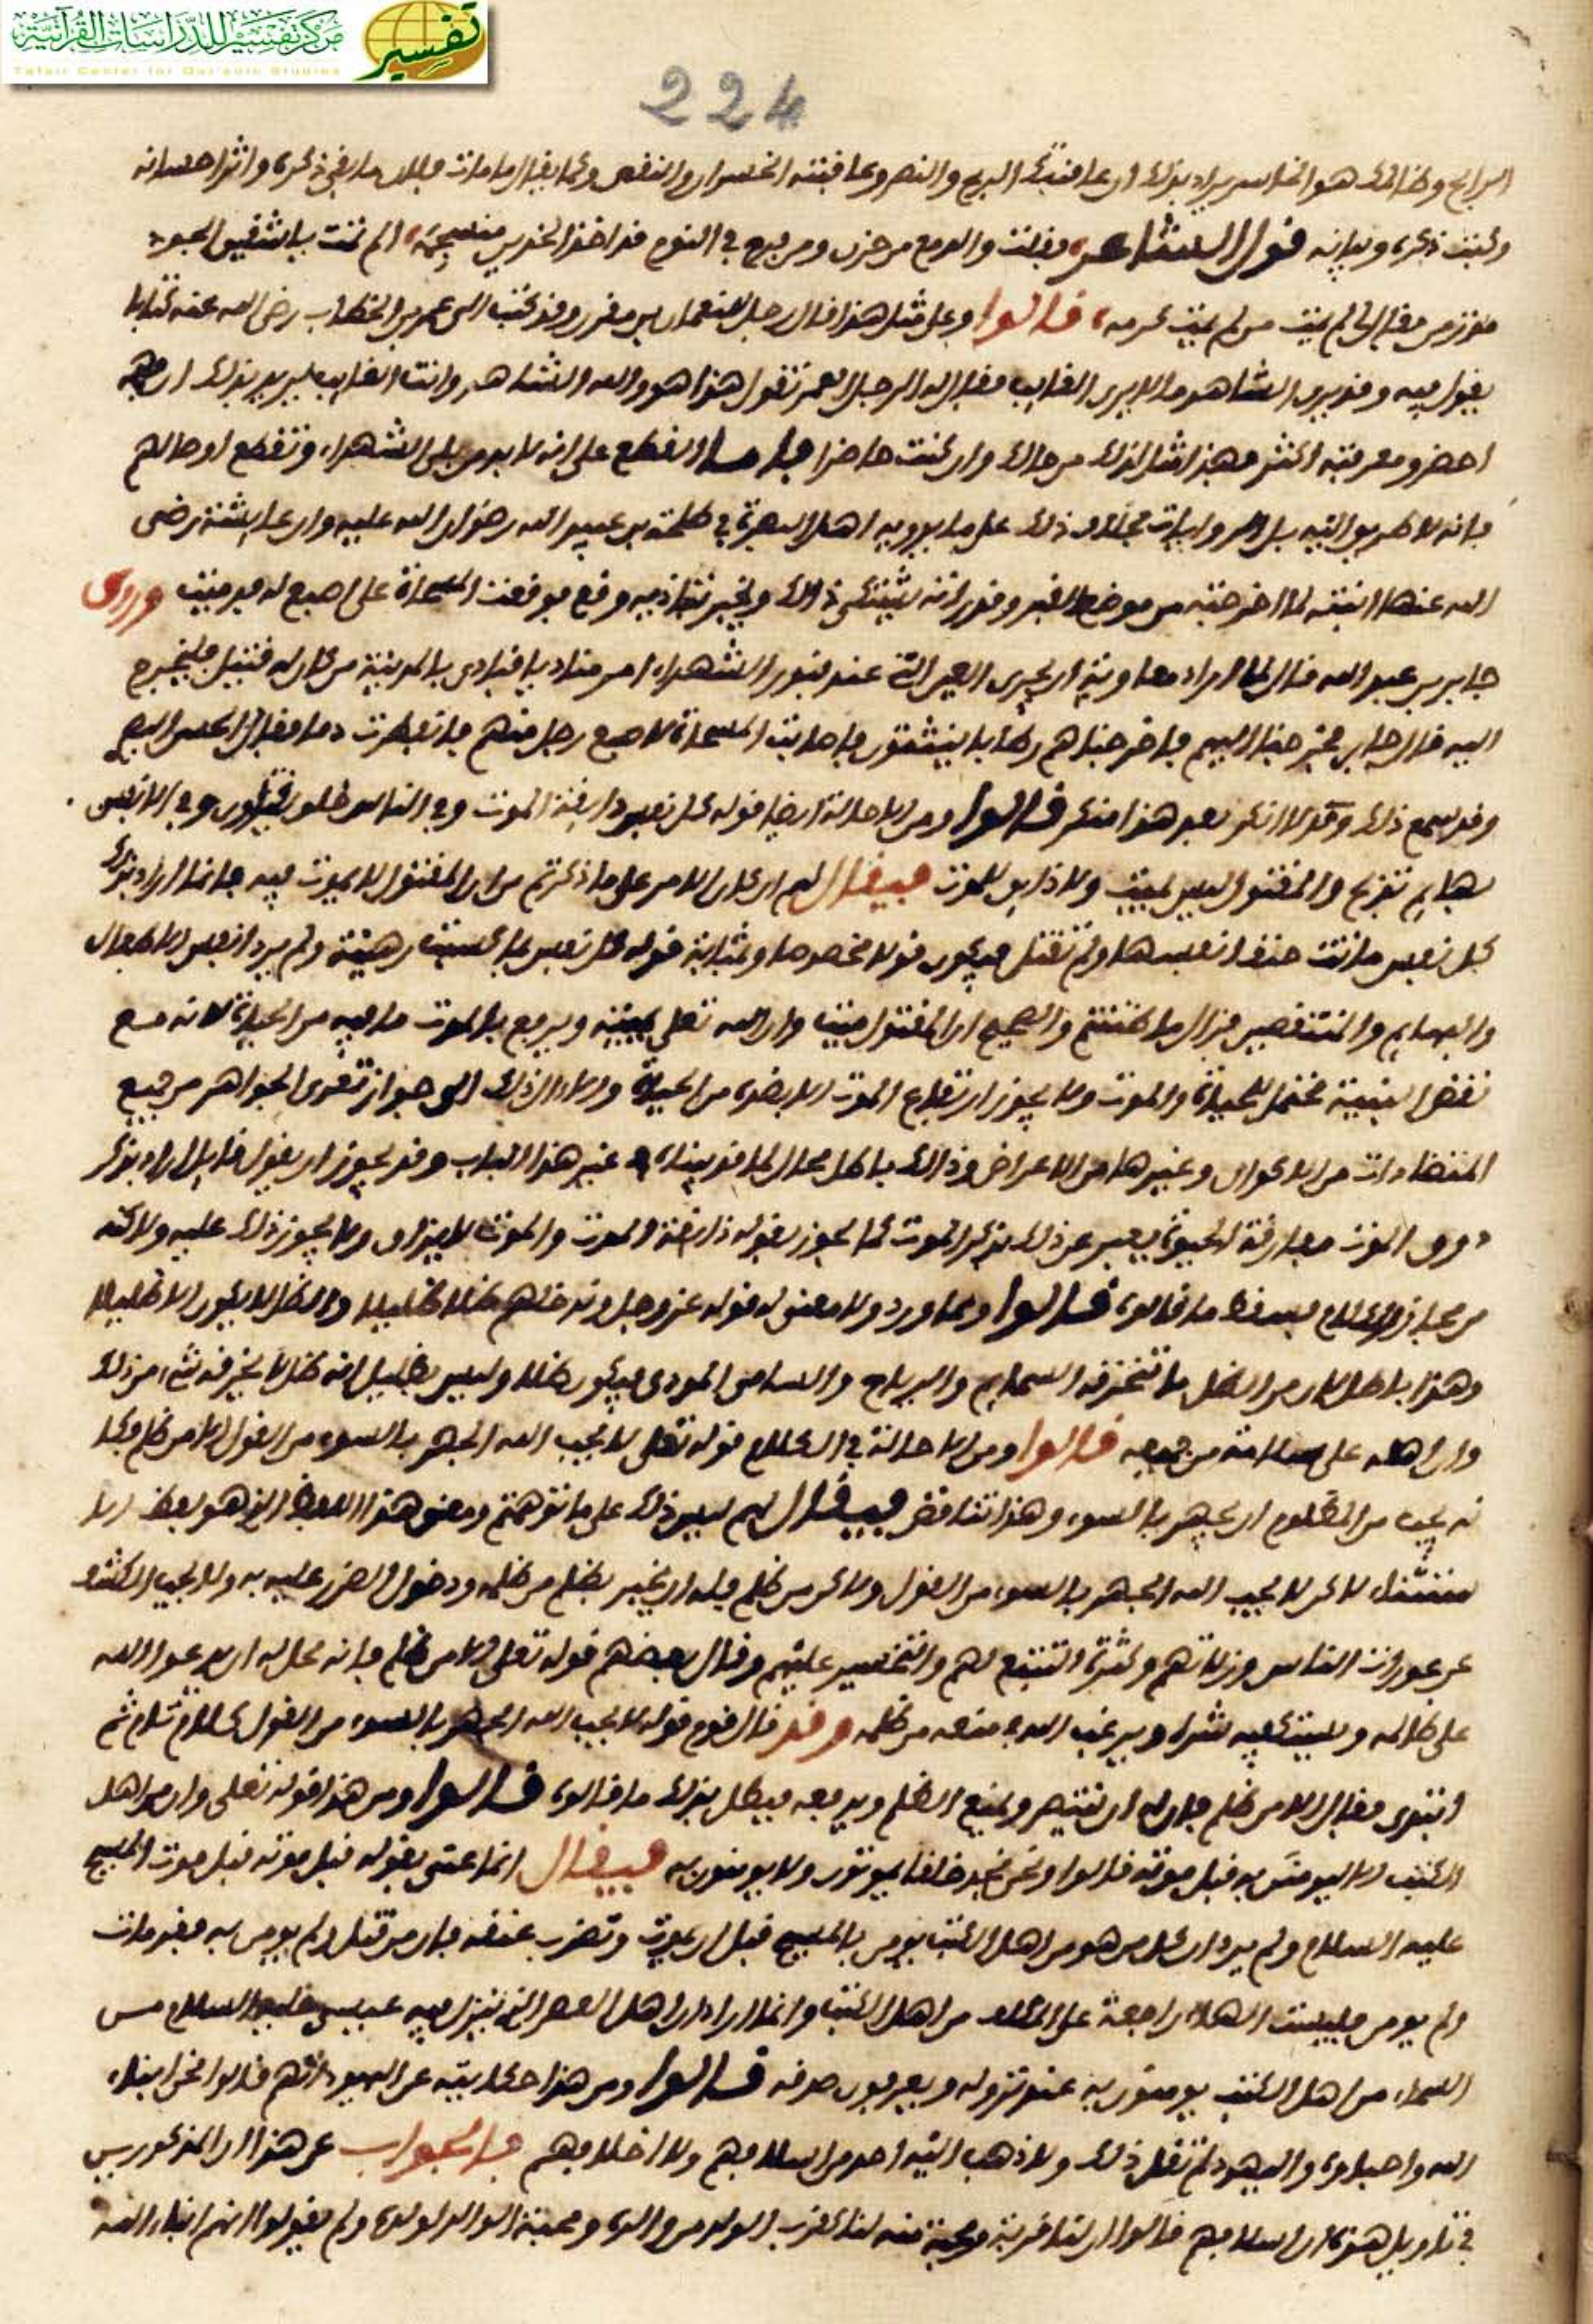 مركز تفسير للدراسات القرآنية
Tafsir Center for Qur'anic Studies
تفسير
224
الرابح وظالمك هو الخاسر يراد بذلك ان عاقبتك الربح والنصر وعاقبته الخسران والنقص وكما يقال ما مات فلان ما بقي ذكره واثر احسانه
وكبت ذكره وبيانه قول الشاعر فقلت والدمع من حزن ومن فرح في اليوم قد اخذ الخدين منسجمه الم تمت يا شقيق الجود
من زمن فقال لي لم يمت من لم يمت كرمه قالوا وعلى مثل هذا قال رجل للنعمان بن مقرن وقد كتب الى عمر بن الخطاب رضي الله عنه كتابا
يقول فيه وقد يرى الشاهد ما لا يرى الغايب فقال له الرجل العمر تقول هذا هو والله الشاهد وانت الغايب يريد بذلك ان
احضر ومعرفته اكثر فهذا مثل لذلك من حالك وان كنت حاضرا فاما القطع على انه لا بد من بلى الشهداء وتقطع اوصالهم
فانه لا طريق اليه بل الروايات بخلاف ذلك على ما يرويه اهل البصرة في طلحة بن عبيد الله رضوان الله عليه وان عايشة رضي
الله عنها ابنته لما اخرجته من موضع القبر وقد راته يشتكي ذلك وقع فوقعت المسحاة على اصبع له فدميت وروى
جابر بن عبد الله قال لما اراد معاوية ان يجري العين التي عند قبور الشهداء امر مناديا فنادى بالمدينة من كان له قتيل فليخرج
اليه قال جابر فخرجنا اليهم فاخرجناهم رطابا يتثنون فاصابت المسحاة اصبع رجل منهم فانفطرت دما فقال الحسن البصري
وقد سمع ذلك لا انكر بعد هذا منكر قالوا ومن الاحالة ايضا قوله كل نفس ذايقة الموت وفي الناس مقتولون وفي الانفس
بهايم تذبح والمقتول ليس بميت ولا ذايق للموت فيقال لهم ان كان الامر على ما ذكرتم من ان المقتول لا يموت فيه فانما اراد بذلك
كل نفس ماتت حتف انفسها ولم تقتل فيكون قولا مخصوصا وبمثابة قوله كل نفس بما كسبت رهينة ولم يرد انفس الاطفال
والبهايم والمنتقصين فزال ما ظننتم والصحيح ان المقتول ميت وان الله تعلى يميته ويرفع بالموت ما فيه من الحياة لانه مع
نقض البنية محتمل للحياة والموت ولا يجوز ارتفاع الموت الا بضده من الحياة والا ال ذلك الى جواز تعرى الجواهر من جميع
المتضادات من الاكوان وغيرها من الاعراض وذلك باطل محال لما قد بيناه في غير هذا الباب وقد يجوز ان يقول قايل اراد بذكر
ذوق الموت مفارقة الحيوة فعبر عن ذلك بذكر الموت كما يجوز بقوله ذايقة الموت والموت لا يذاق ولا يجوز ذلك عليه ولاكنه
من مجاز الكلام فسقط ما قالوه قالوا ومما ورد ولا معنى له قوله عز وجل وندخلهم ظلا ظليلا والظل لا يكون الا ظليلا
وهذا باطل لان من الظل ما تخترقه السمايم والرياح والسامى الموذي فيكون ظلا وليس بظليل انه ظل لا يخرقه شيء من ذلك
وان اهله على سلامة من جميعه قالوا ومن الاحالة في الكلام قوله تعلى لا يحب الله الجهر بالسوء من القول الا من ظلم فكا
نه يحب من المظلوم ان يجهر بالسوء وهذا تناقض فيقال لهم ليس ذلك على ما توهمتم ومعنى هذا اللفظ الذي هو لفظ الا
ستثناء لاكن لا يحب الله الجهر بالسوء من القول ولاكن من ظلم فله ان يخبر بظلم من ظلمه ودخول الضرر عليه به ولا يحب الكشف
عن عورات الناس وزلاتهم وكثرة التتبع لهم والتحسير عليهم وقال بعضهم قوله تعلى الا من ظلم فانه محل له ان يدعوا الله
على ظالمه ويستكفيه شره ويرغب الله في منعه من ظلمه وقد قال قوم قوله لا يحب الله الجهر بالسوء من القول كلام تام ثم
ابتدى فقال الا من ظلم فان له ان ينتصر ويمنع الظلم ويدفعه فبطل بذلك ما قالوه قالوا ومن هذا قوله تعلى وان من اهل
الكتب الا ليومنن به قبل موته قالوا ونحن نجد خلقا يموتون ولا يومنون به فيقال انما عنى بقوله قبل موته قبل موت المسيح
عليه السلام ولم يرد ان كل من هو من اهل الكتب يومن بالمسيح قبل ان يموت وتضرب عنقه فان من قتل ولم يومن به فقد مات
ولم يومن فليست الهاء راجعة على من اهل الكتب وانما اراد ان اهل العصر الذي ينزل فيه عيسى عليه السلام من
السماء من اهل الكتب يومنون به عند نزوله ويعرفون صدقه قالوا ومن هذا حكايته عن اليهود انهم قالوا نحن ابناء
الله واحباوه واليهود لم تقل ذلك ولا ذهب اليه احد من اسلافهم ولا اخلافهم فالجواب عن هذا ان المذكورين
في تاويل هذه ان اسلافهم قالوا ان لنا قربة ومحبة منه لنا كقرب الولد من والده ومحبة الوالد لولده ولم يقولوا انهم ابناء الله